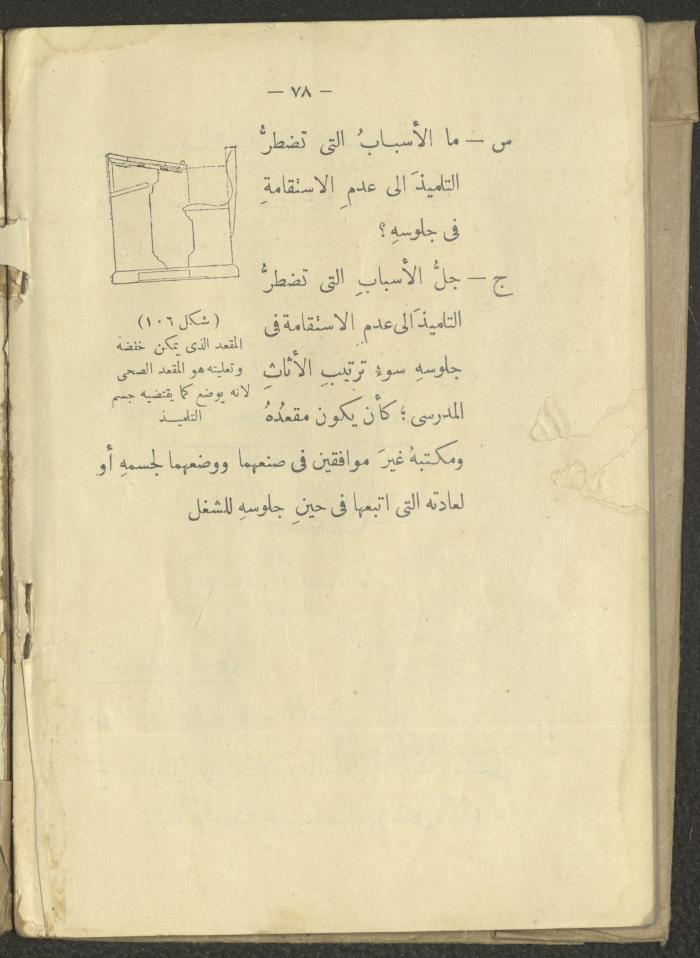 — ٧٨ —
س — ما الأسبابُ التى تضطرُّ
التلميذَ الى عدمِ الاستقامةِ
فى جلوسهِ ؟
ج — جلُّ الأسبابِ التى تضطرُّ
التلميذَ الى عدمِ الاستقامة فى
جلوسهِ سوءُ ترتيبِ الأثاثِ
المدرسى ؛ كأن يكون مقعدُهُ
ومكتبهُ غيرَ موافقين فى صنعهما ووضعهما لجسمهِ أو
لعادته التى اتبعها فى حينِ جلوسهِ للشغل
( شكل ١٠٦ )
المقعد الذى يمكن خفضه
وتعليته هو المقعد الصحى
لانه يوضع كما يقتضيه جسم
التلميـــذ